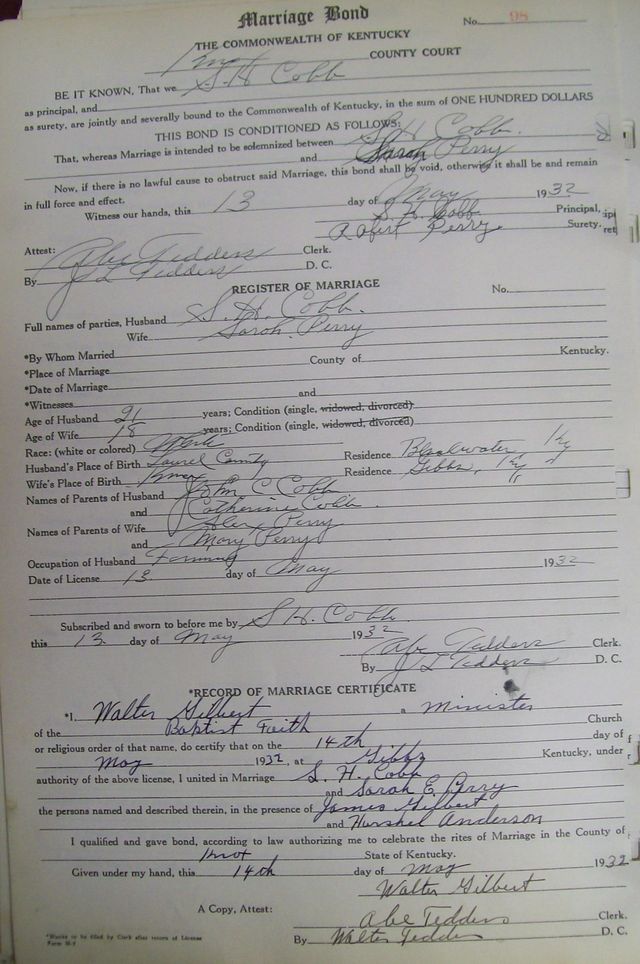 Marriage Bond
No. 98
THE COMMONWEALTH OF KENTUCKY
Knox COUNTY COURT
BE IT KNOWN, That we S. H. Cobb
as principal, and
as surety, are jointly and severally bound to the Commonwealth of Kentucky, in the sum of ONE HUNDRED DOLLARS
THIS BOND IS CONDITIONED AS FOLLOWS:
That, whereas Marriage is intended to be solemnized between S. H. Cobb.
and Sarah Perry
Now, if there is no lawful cause to obstruct said Marriage, this bond shall be void, otherwise it shall be and remain
in full force and effect.
Witness our hands, this 13 day of May 1932
S. H. Cobb Principal,
Robert Perry. Surety.
Attest: Abe Tedders Clerk.
By J L Tedders D. C.
REGISTER OF MARRIAGE
No.
Full names of parties, Husband S. H. Cobb.
Wife Sarah Perry
*By Whom Married
*Place of Marriage County of Kentucky.
*Date of Marriage
*Witnesses and
Age of Husband 21 years; Condition (single, widowed, divorced)
Age of Wife 18 years; Condition (single, widowed, divorced)
Race: (white or colored) White
Husband's Place of Birth Laurel County Residence Blackwater, Ky
Wife's Place of Birth Knox Residence Gibbs, Ky
Names of Parents of Husband John C Cobb
and Catherine Cobb.
Names of Parents of Wife Alex Perry
and Mary Perry
Occupation of Husband Farming
Date of License 13. day of May 1932
Subscribed and sworn to before me by S H. Cobb.
this 13. day of May 1932
Abe Tedders Clerk.
By J L Tedders D. C.
*RECORD OF MARRIAGE CERTIFICATE
*I, Walter Gilbert a Minister
of the Baptist Faith Church
or religious order of that name, do certify that on the 14th day of
May 1932, at Gibbs Kentucky, under
authority of the above license, I united in Marriage S. H. Cobb
and Sarah E. Perry
the persons named and described therein, in the presence of James Gilbert
and Hershel Anderson
I qualified and gave bond, according to law authorizing me to celebrate the rites of Marriage in the County of
Knox State of Kentucky.
Given under my hand, this 14th day of May 1932
Walter Gilbert
A Copy, Attest: Abe Tedders Clerk.
By Walter Tedders D. C.
*Blanks to be filled by Clerk after return of License